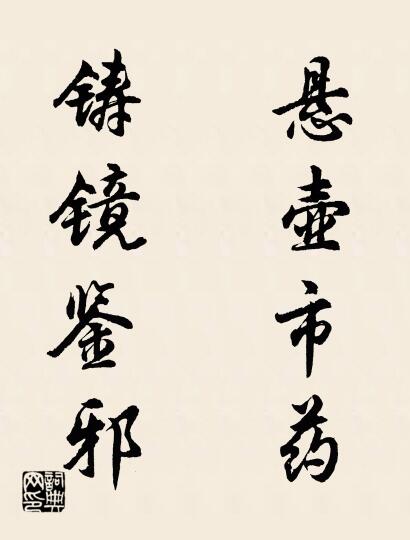 悬壶市药
铸镜鉴邪
詞典
网